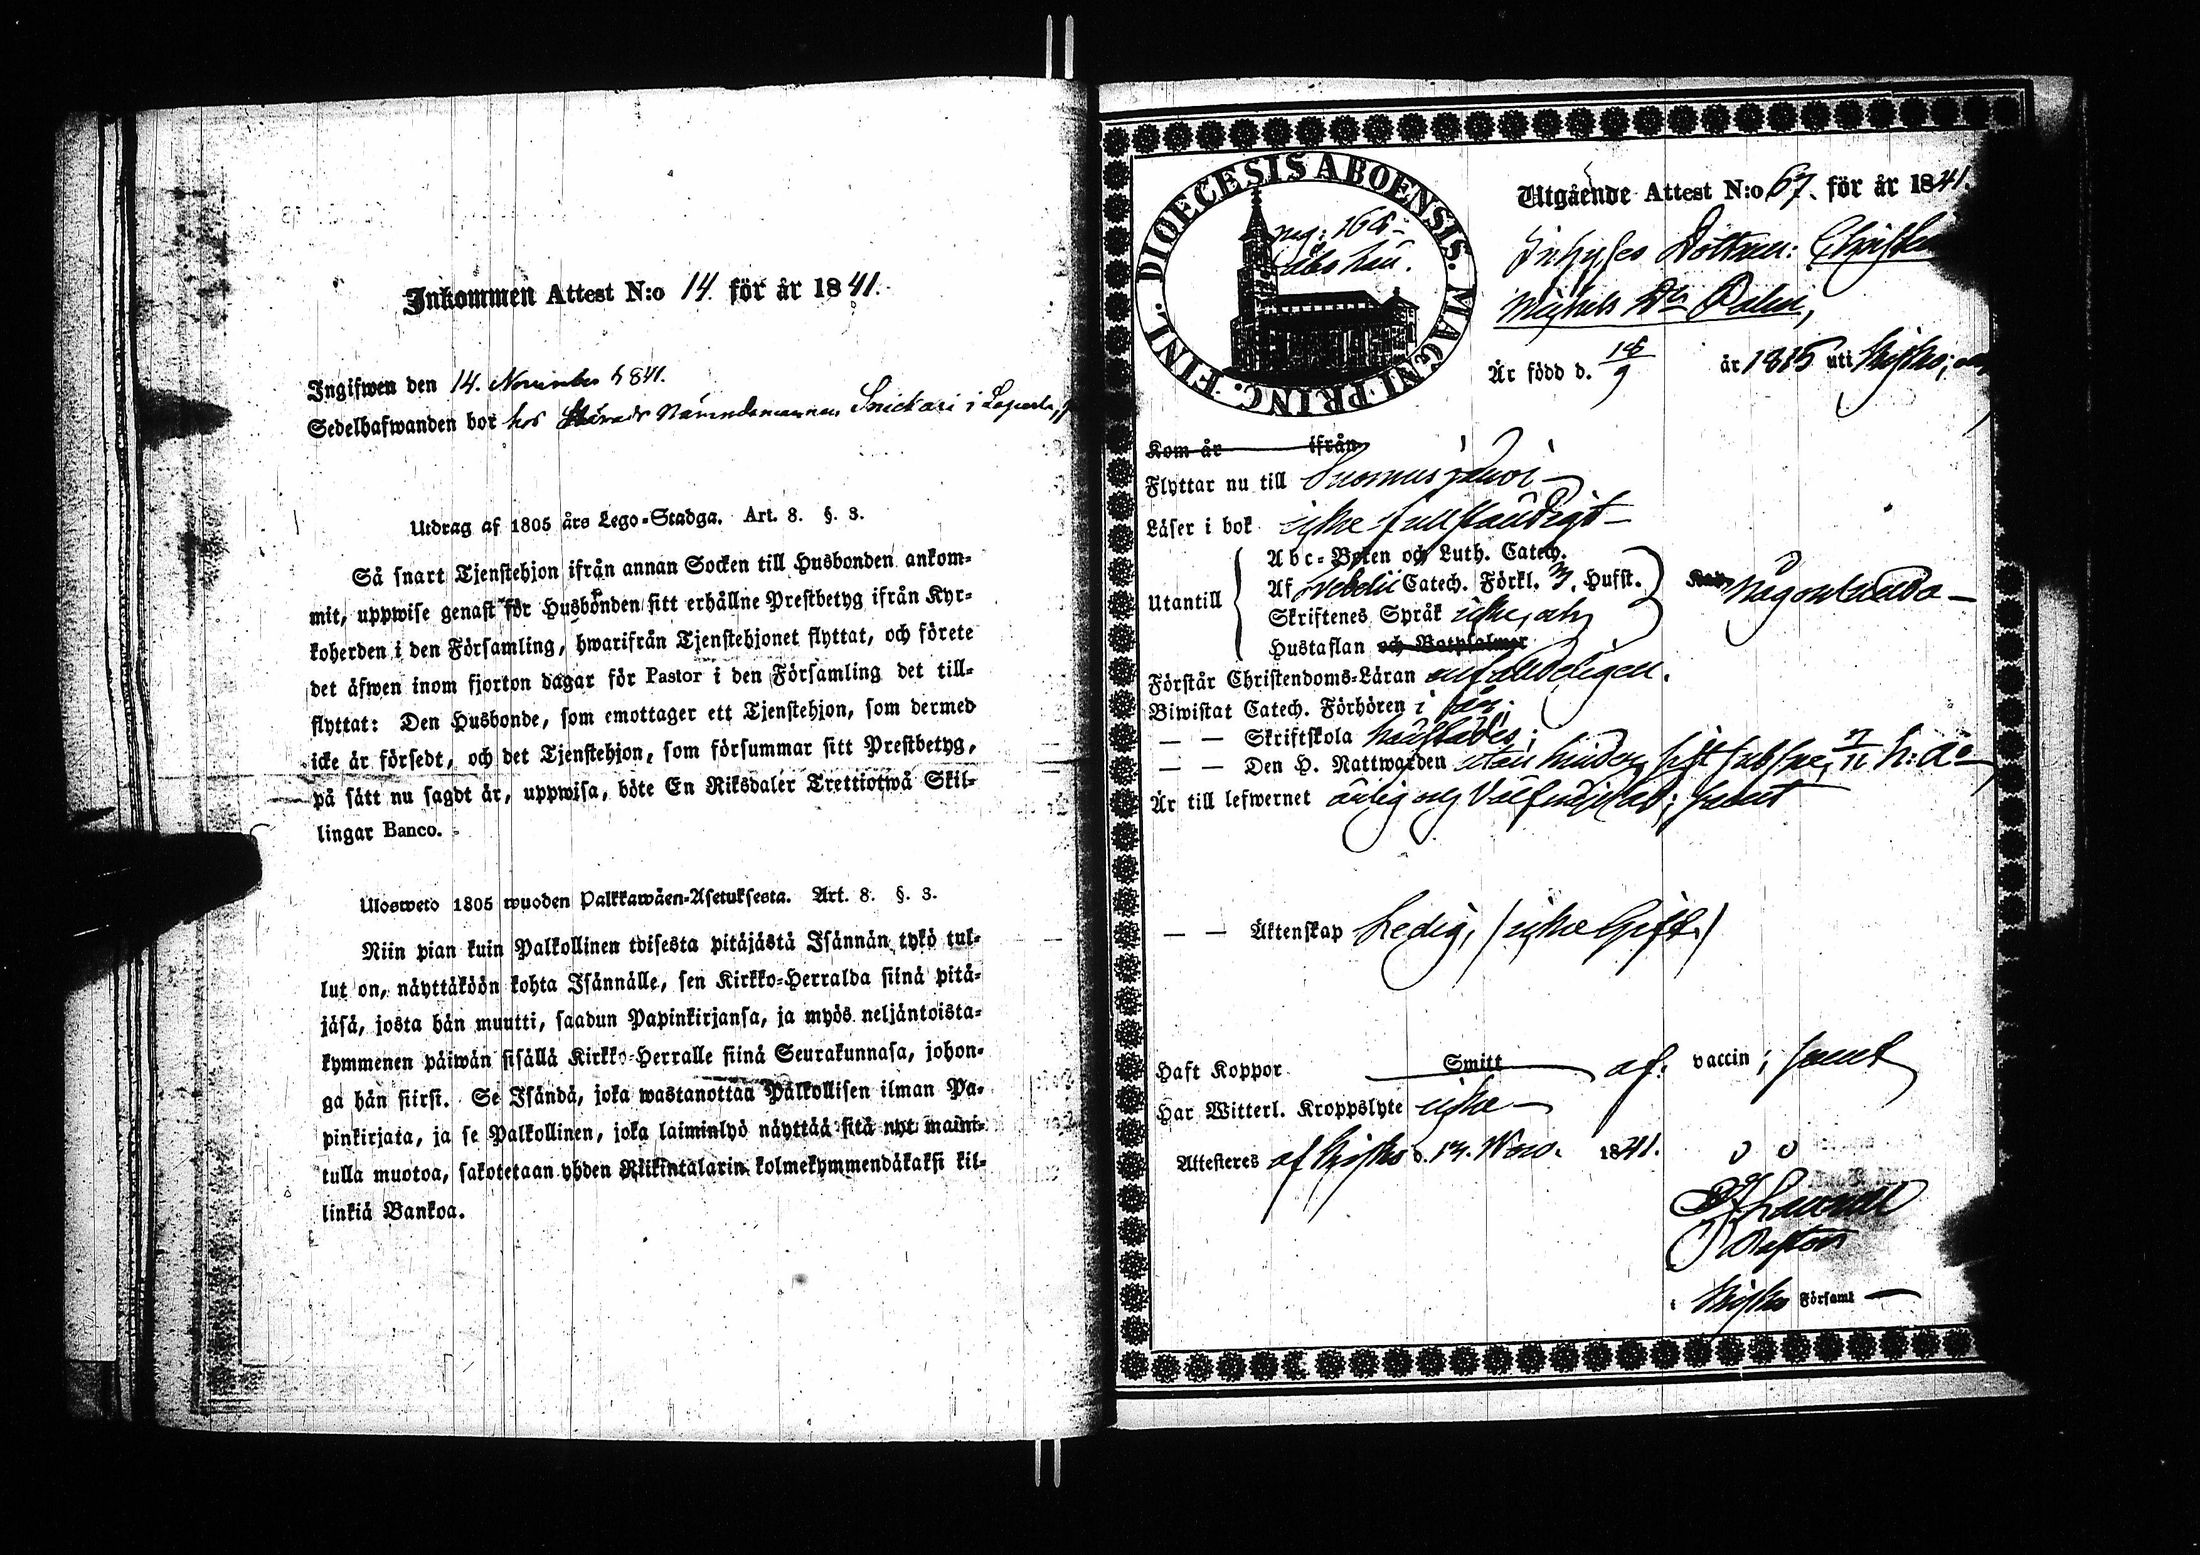 Inkommen Attest N:o 14. för år 1841.
Ingifwen den 14. November 1841.
Sedelhafwanden bor hos Härads Nämndemannen Snickari i
Utdrag af 1805 års Lego-Stadga. Art. 8. §. 3.
Så snart Tjenstehjon ifrån annan Socken till Husbonden ankom-
mit, uppwise genast för Husbonden sitt erhållne Prestbetyg ifrån Kyr-
koherden i den Församling, hwarifrån Tjenstehjonet flyttat, och förete
det äfwen inom fjorton dagar för Pastor i den Församling det till-
flyttat: Den Husbonde, som emottager ett Tjenstehjon, som dermed
icke är försedt, och det Tjenstehjon, som försummar sitt Prestbetyg,
på sätt nu sagdt är, uppwisa, böte En Riksdaler Trettiotwå Skil-
lingar Banco.
Ulosweto 1805 wuoden Palkkawäen-Asetuksesta. Art. 8. §. 3.
Niin pian kuin Palkollinen toisesta pitäjästä Isännän tykö tul-
lut on, näyttäköön kohta Isännälle, sen Kirkko-Herralda siinä pitä-
jäsä, josta hän muutti, saadun Papinkirjansa, ja myös neljäntoista-
kymmenen päiwän sisällä Kirkko-Herralle siinä Seurakunnasa, johon-
ga hän siirsi. Se Isändä, joka wastanottaa Palkollisen ilman Pa-
pinkirjata, ja se Palkollinen, joka laiminlyö näyttää sitä nyt maini-
tulla muotoa, sakotetaan yhden Riikintalarin kolmekymmendäkaksi kil-
linkiä Bankoa.
DIOECESIS ABOENSIS. MAGNI PRINC. FINL.
pag: 168
Utgående Attest N:o 67. för år 1841.
Inhyses Dottren:
Michels Dr
Är född d. 18/9 år 1815 uti Kisko;
Kom år ifrån
Flyttar nu till Suomusjärvi
Läser i bok icke fullständigt
Utantill
Abc-Boken och Luth. Catech.
Af Svebelii Catech. Förkl. 3. Hufst.
Skriftenes Språk icke, och
Hustaflan och Botpsalmer
Kan någorlunda
Förstår Christendoms-Läran enfaldeligen.
Biwistat Catech. Förhören i år;
— — Skriftskola
— — Den H. Nattwarden utan hinder, sist h: a:
Är till lefwernet ärlig och välfrejdad; samt
— — Äktenskap Ledig, (icke Gift.)
Haft Koppor Smitt af. vaccin; samt
Har Witterl. Kroppslyte icke
Attesteras af Kisko d. 13. Nov. 1841.
Pastor
i Kisko Församl